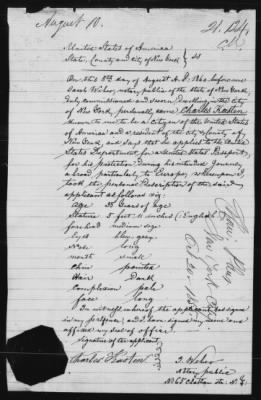 August 10.
21. Feb.
United States of America
State, County and City of New York } ss
On this 8th day of August A.D. 1860 before me
Jacob Weber, notary public of the State of New York,
duly commissioned and sworn, dwelling in the city
of New York, personally came Charles Kasten
known to me to be a citizen of the United States
of America and a resident of the city & County of
New York, and says that he applies to the United
States Department for a United States Passport,
for his protection during his intended journey
abroad, particularly to Europe, whereupon I
took the personal description of the said
applicant as follows viz:
Age 35 years of age
Stature 5 feet 11 inches (English)
forehead medium size
Eyes blue gray
Nose long
mouth small
Chin pointed
Hair dark
Complexion pale
face long
In witness whereof the applicant has signed
in my presence, and I have signed my name and
affixed my seal of office.
Signature of the applicant
Charles Kasten
J. Weber
Notary public
No 68 Clinton Str. N.Y.
New York City